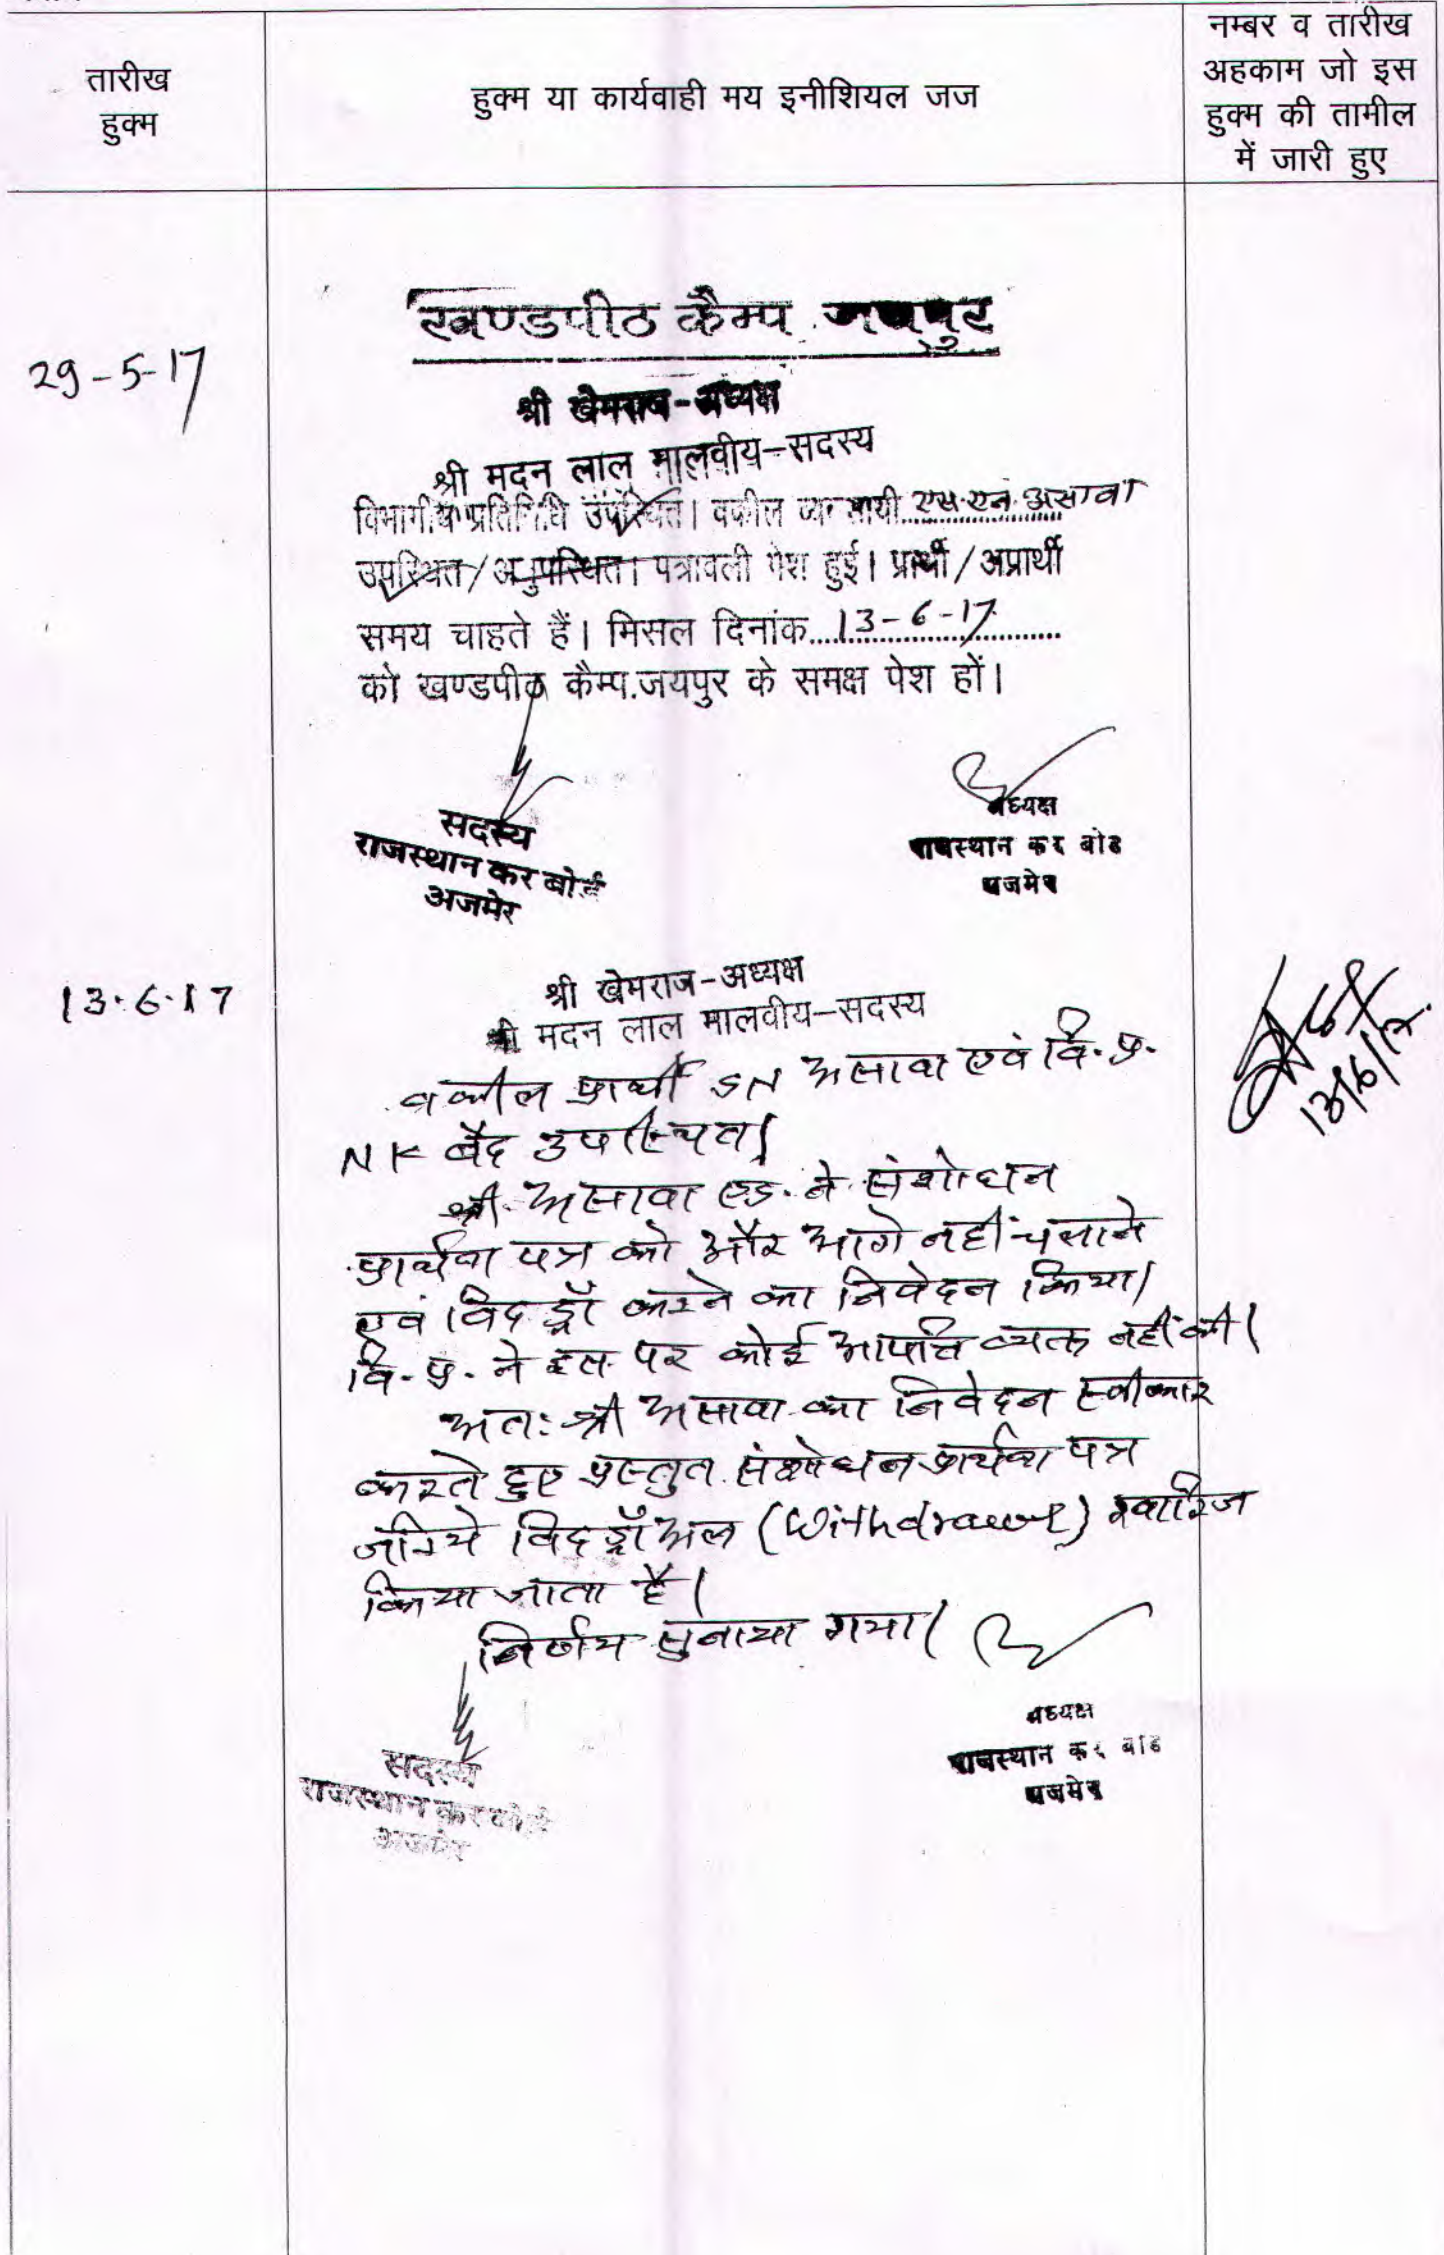 तारीख
हुक्म
हुक्म या कार्यवाही मय इनीशियल जज
नम्बर व तारीख
अहकाम जो इस
हुक्म की तामील
में जारी हुए
29-5-17
खण्डपीठ कैम्प जयपुर
श्री खेमराज-अध्यक्ष
श्री मदन लाल मालवीय-सदस्य
विभागीय प्रतिनिधि उपस्थित। वकील व्यवसायी एस.एन. असावा
उपस्थित/अनुपस्थित। पत्रावली पेश हुई। प्रार्थी/अप्रार्थी
समय चाहते हैं। मिसल दिनांक....13-6-17....
को खण्डपीठ कैम्प.जयपुर के समक्ष पेश हों।
सदस्य
राजस्थान कर बोर्ड
अजमेर
अध्यक्ष
राजस्थान कर बोर्ड
अजमेर
13.6.17
श्री खेमराज-अध्यक्ष
श्री मदन लाल मालवीय-सदस्य
वकील प्रार्थी SN असावा एवं वि.प्र.
NK बैद उपस्थित।
श्री असावा एड. ने संशोधन
प्रार्थना पत्र को और आगे नहीं चलाने
एवं विदड्रॉ करने का निवेदन किया।
वि.प्र. ने इस पर कोई आपत्ति व्यक्त नहीं की।
अतः श्री असावा का निवेदन स्वीकार
करते हुए प्रस्तुत संशोधन प्रार्थना पत्र
जरिये विदड्रॉअल (Withdrawal) खारिज
किया जाता है।
निर्णय सुनाया गया।
13/6/17
सदस्य
राजस्थान कर बोर्ड
अजमेर
अध्यक्ष
राजस्थान कर बोर्ड
अजमेर